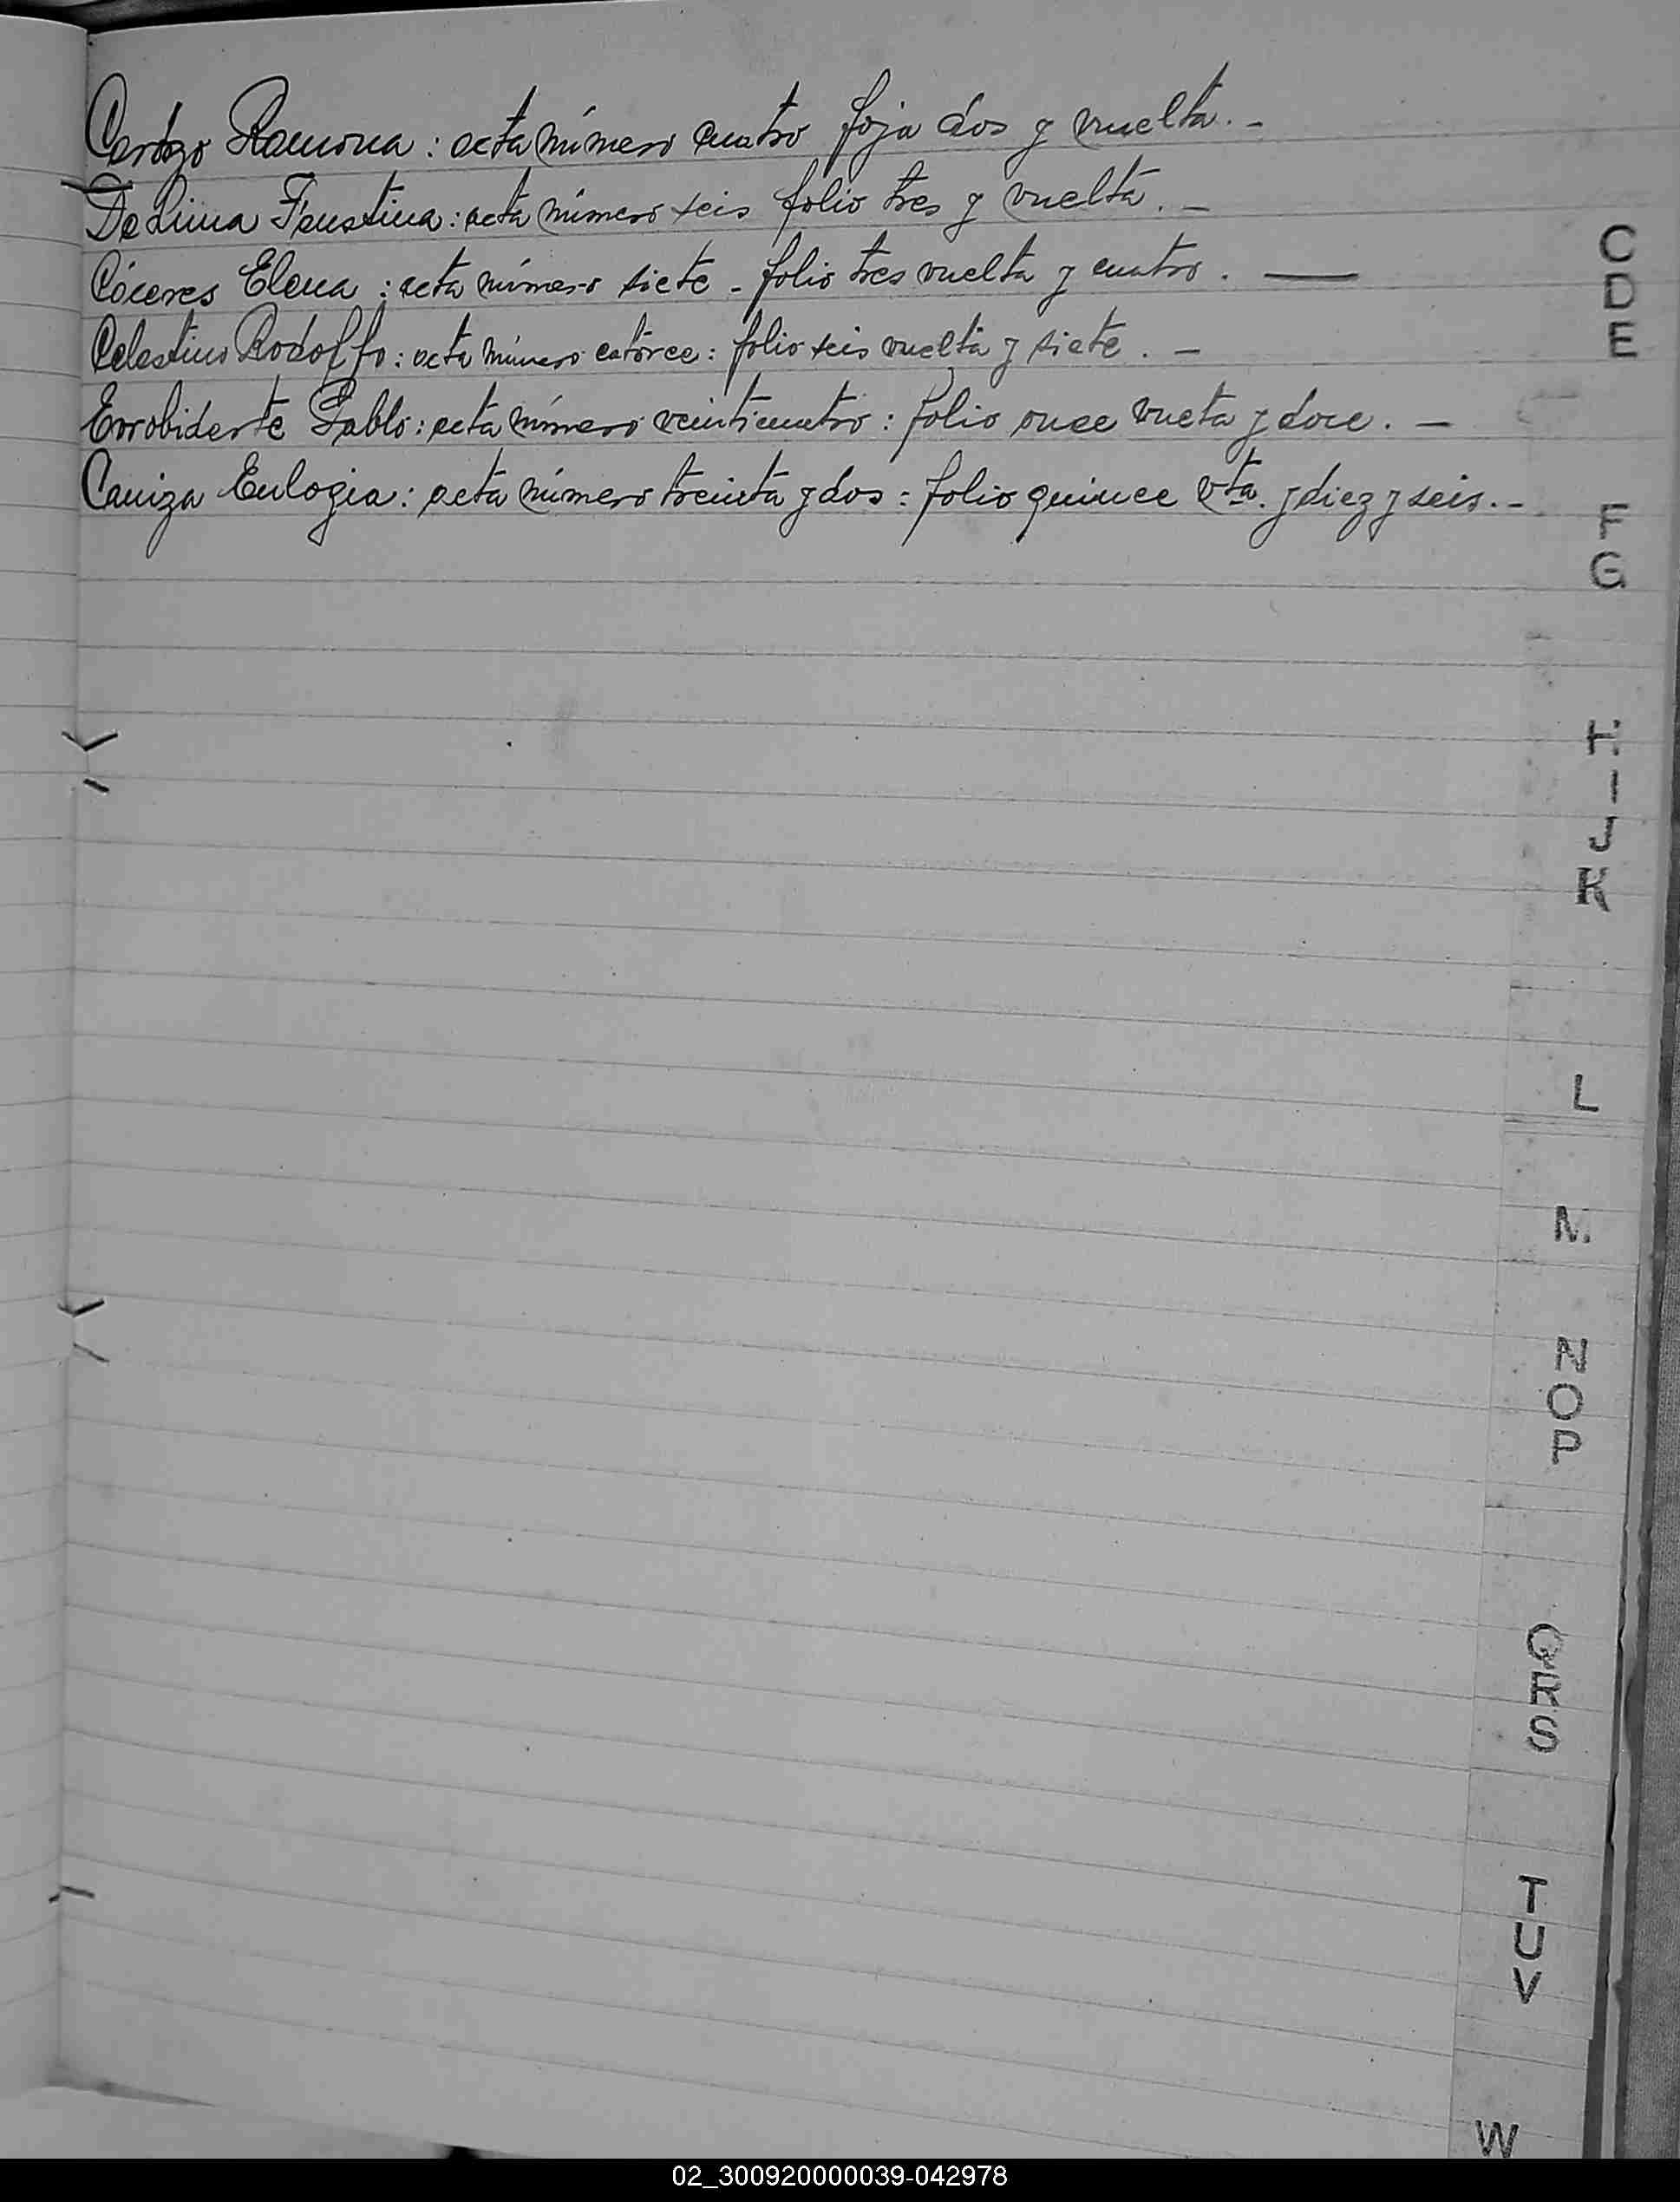 Cardozo Ramona: acta número cuatro foja dos y vuelta. -
De Lima Faustina: acta número seis folio tres y vuelta. -
Cáceres Elena: acta número siete - folio tres vuelta y cuatro. —
Celestino Rodolfo: acta número catorce: folio seis vuelta y siete. -
Errobidarte Pablo: acta número veinticuatro: folio once vueta y doce. -
Caniza Eulogia: acta número treinta y dos: folio quince vta. y diez y seis. -
C
D
E
F
G
H
I
J
K
L
M
N
O
P
Q
R
S
T
U
V
W
02_300920000039-042978